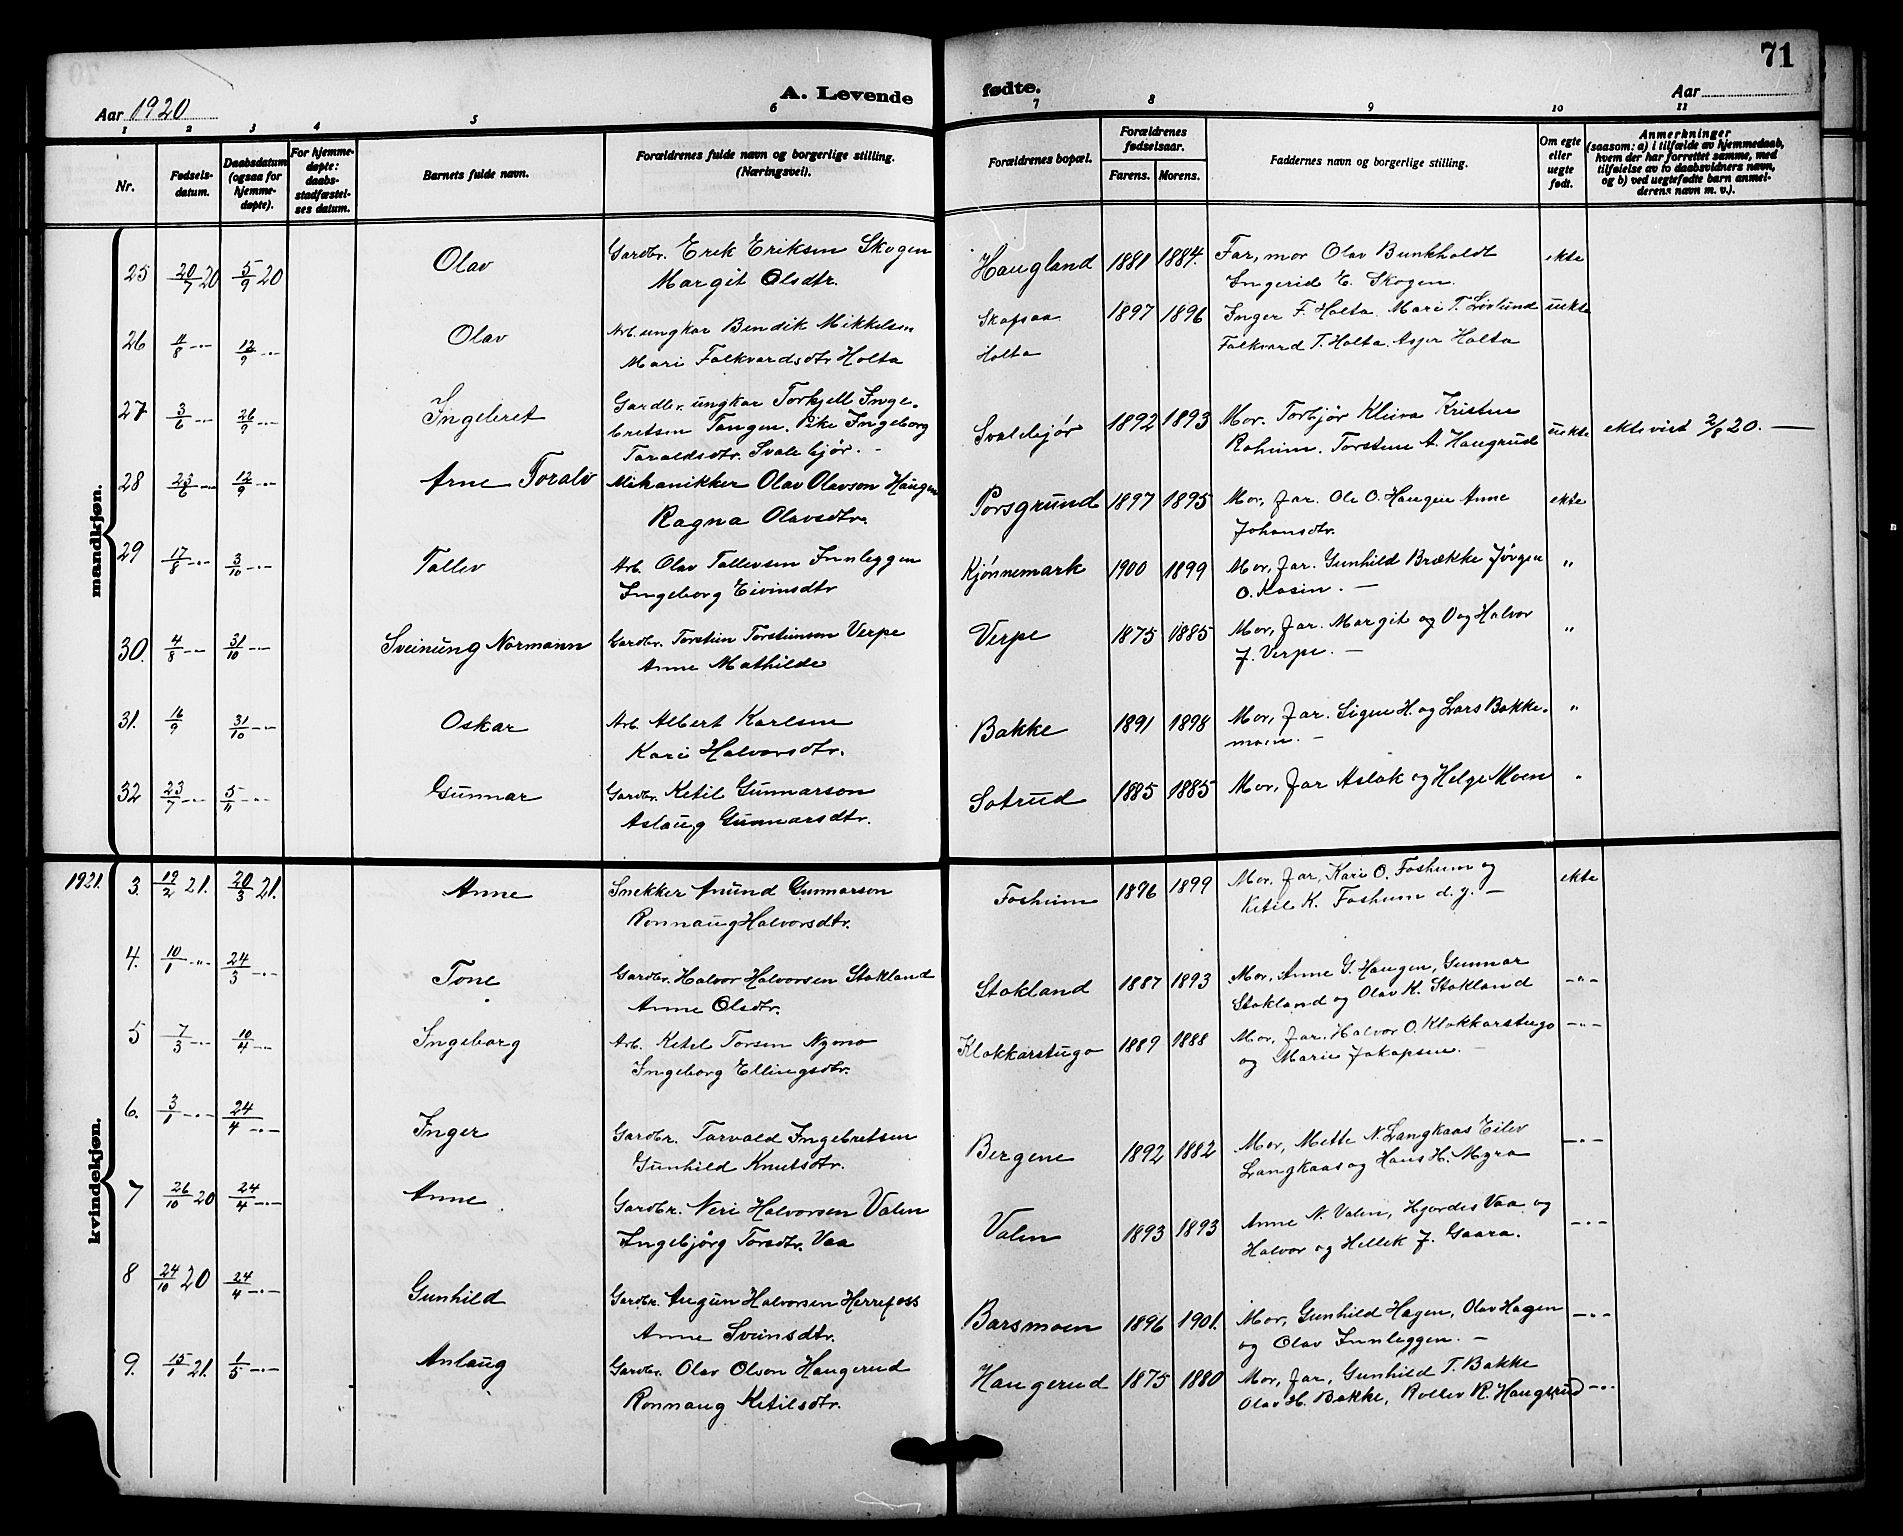 71
Aar 1920 A. Levende fødte. Aar
1 2 3 4 5 6 7 8 9 10 11
Nr.
Fødsels-
datum.
Daabsdatum
(ogsaa for
hjemme-
døpte).
For hjemme-
døpte:
daabs-
stadfæstel-
ses datum.
Barnets fulde navn.
Forældrenes fulde navn og borgerlige stilling.
(Næringsvei).
Forældrenes bopæl.
Forældrenes
fødselsaar.
Farens. Morens.
Faddernes navn og borgerlige stilling.
Om egte
eller
uegte
født.
Anmerkninger
(saasom: a) i tilfælde av hjemmedaab,
hvem der har forrettet samme, med
tilføielse av to daabsvidners navn,
og b) ved uegtefødte barn anmel-
derens navn m. v.).
mandkjøn.
25 20/7 20 5/9 20 Olav Gardbr. Erik Eriksen Skogen Haugland 1881 1884. Far, mor Olav Bunkholdt ekte
Margit Olsdtr. Ingerid E. Skogen.
26 11/8 -"- 12/9 -"- Olav Arb. ungkar Bendik Mikkelsen Skafsaa 1897 1896 Inger F. Holta. Mari T. Løvlund uekte
Mari Folkvardsdtr Holta Holta Folkvard T. Holta. Asger Holta
27 3/6 -"- 26/9 -"- Ingebret Gardbr. ungkar Torkjell Inge-
bretsen Tangen. Pike Ingeborg Svalebjør 1892 1893 Mor. Torbjør Kleiva Kristen uekte ektevist 2/8 20. —
Taraldsdtr. Svalebjør. - Roheim. Torstein A. Haugrud
28 23/6 -"- 12/9 -"- Arne Toralv Mekanikker Olav Olavson Haugen Porsgrund 1897 1895 Mor, far. Ole O. Haugen Anne ekte
Ragna Olavsdtr. Johansdtr.
29 17/8 -"- 3/10 -"- Tallev Arb. Olav Tallevsen Innleggen Kjønnemark 1900 1899 Mor, far. Gunhild Brække Jørgen "
Ingeborg Eivinsdtr O. Kosin. —
30. 4/8 -"- 31/10 -"- Sveinung Normann Gardbr. Torstein Torsteinsen Verpe Verpe 1875 1885 Mor, far. Margit og O og Halvor "
Anne Mathilde J. Verpe. —
31. 16/9 31/10 -"- Oskar Arb. Albert Karlsen Bakke 1891 1898 Mor, far. Signe H. og Lars Bakke- "
Kari Halvorsdtr. moen. —
32 23/7 -"- 5/11 -"- Gunnar Gardbr. Ketil Gunnarson Sotrud 1885 1885 Mor, far Aslak og Helge Moen "
Aslaug Gunnarsdtr.
kvindekjøn.
1921. 3. 19/2 21. 20/3 21. Anne Snekker Anund Gunnarson Foshum 1896 1899 Mor, far, Kari O. Foshum og ekte
Ronnaug Halvorsdtr. Ketil K. Foshum d. y. —
4. 10/1 -"- 24/3 -"- Tone Gardbr. Halvor Halvorsen Stokland Stokland 1887 1893 Mor, Anne G. Haugen, Gunnar -"-
Anne Olsdtr. Stokland og Olav K. Stokland
5 7/3 -"- 10/4 -"- Ingeborg Arb. Ketil Torsen Nymo Klokkarstugo 1889 1888 Mor, far. Halvor O. Klokkarstugo -"-
Ingeborg Ellingsdtr. og Marie Jakopsen. —
6. 3/1 -"- 24/4 -"- Inger Gardbr. Torvald Ingebretsen Bergene 1892 1882 Mor, Mette N. Langkaas Eilev -"-
Gunhild Knutsdtr. Langkaas og Hans H. Myra
7 26/10 20 24/4 -"- Anne Gardbr. Neri Halvorsen Valen Valen 1893 1893 Anne N. Valen, Hjordis Vaa og -"-
Ingebjørg Torsdtr. Vaa Halvor og Hellek J. Gaara.
8 24/10 20 24/4 -"- Gunhild Gardbr. Augun Halvorsen Herrefoss Barsmoen 1896 1901. Mor, Gunhild Hagen, Olav Hagen -"-
Anne Sveinsdtr. og Olav Innleggen. —
9. 15/1 21. 1/5 -"- Anlaug Gardbr. Olav Olson Haugerud Haugerud 1875 1880 Mor, far, Gunhild T. Bakke
Ronnaug Ketilsdtr. Olav H. Bakke, Rollev R. Haugerud -"-